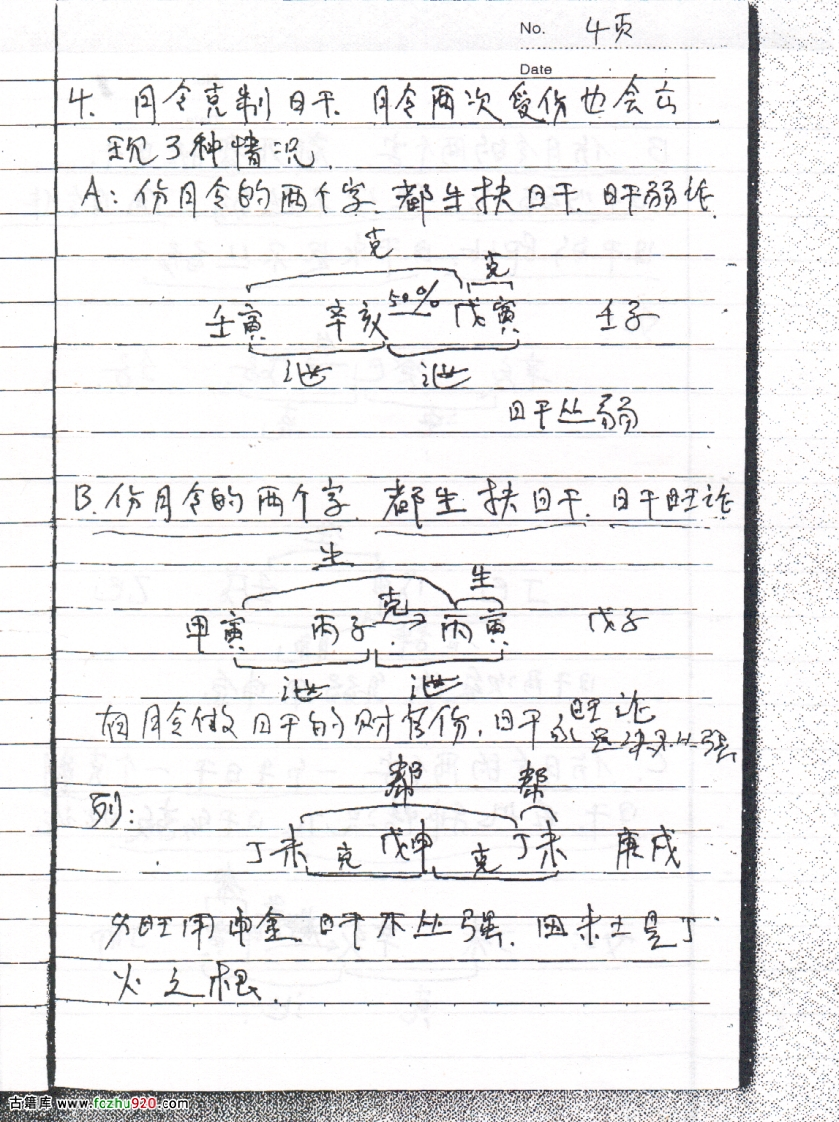 No. 4页
Date
4. 月令克制日干. 月令两次受伤也会出
现了种情况.
A: 伤月令的两个字 都生扶日干. 日干弱论.
克
克
50%
壬寅 辛亥 戊寅 壬子
泄 泄
日干从弱
B. 伤月令的两个字. 都生扶日干. 日干旺论
生
生
克
甲寅 丙子 丙寅 戊子
泄 泄
月令做日干的财官伤, 日干 旺论
永远不从强
帮 帮
列:
丁未 克 戊申 克 丁未 庚戌
火旺用申金. 日干不从强. 因未土是丁
火之根.
古籍库 www.fczhu920.com